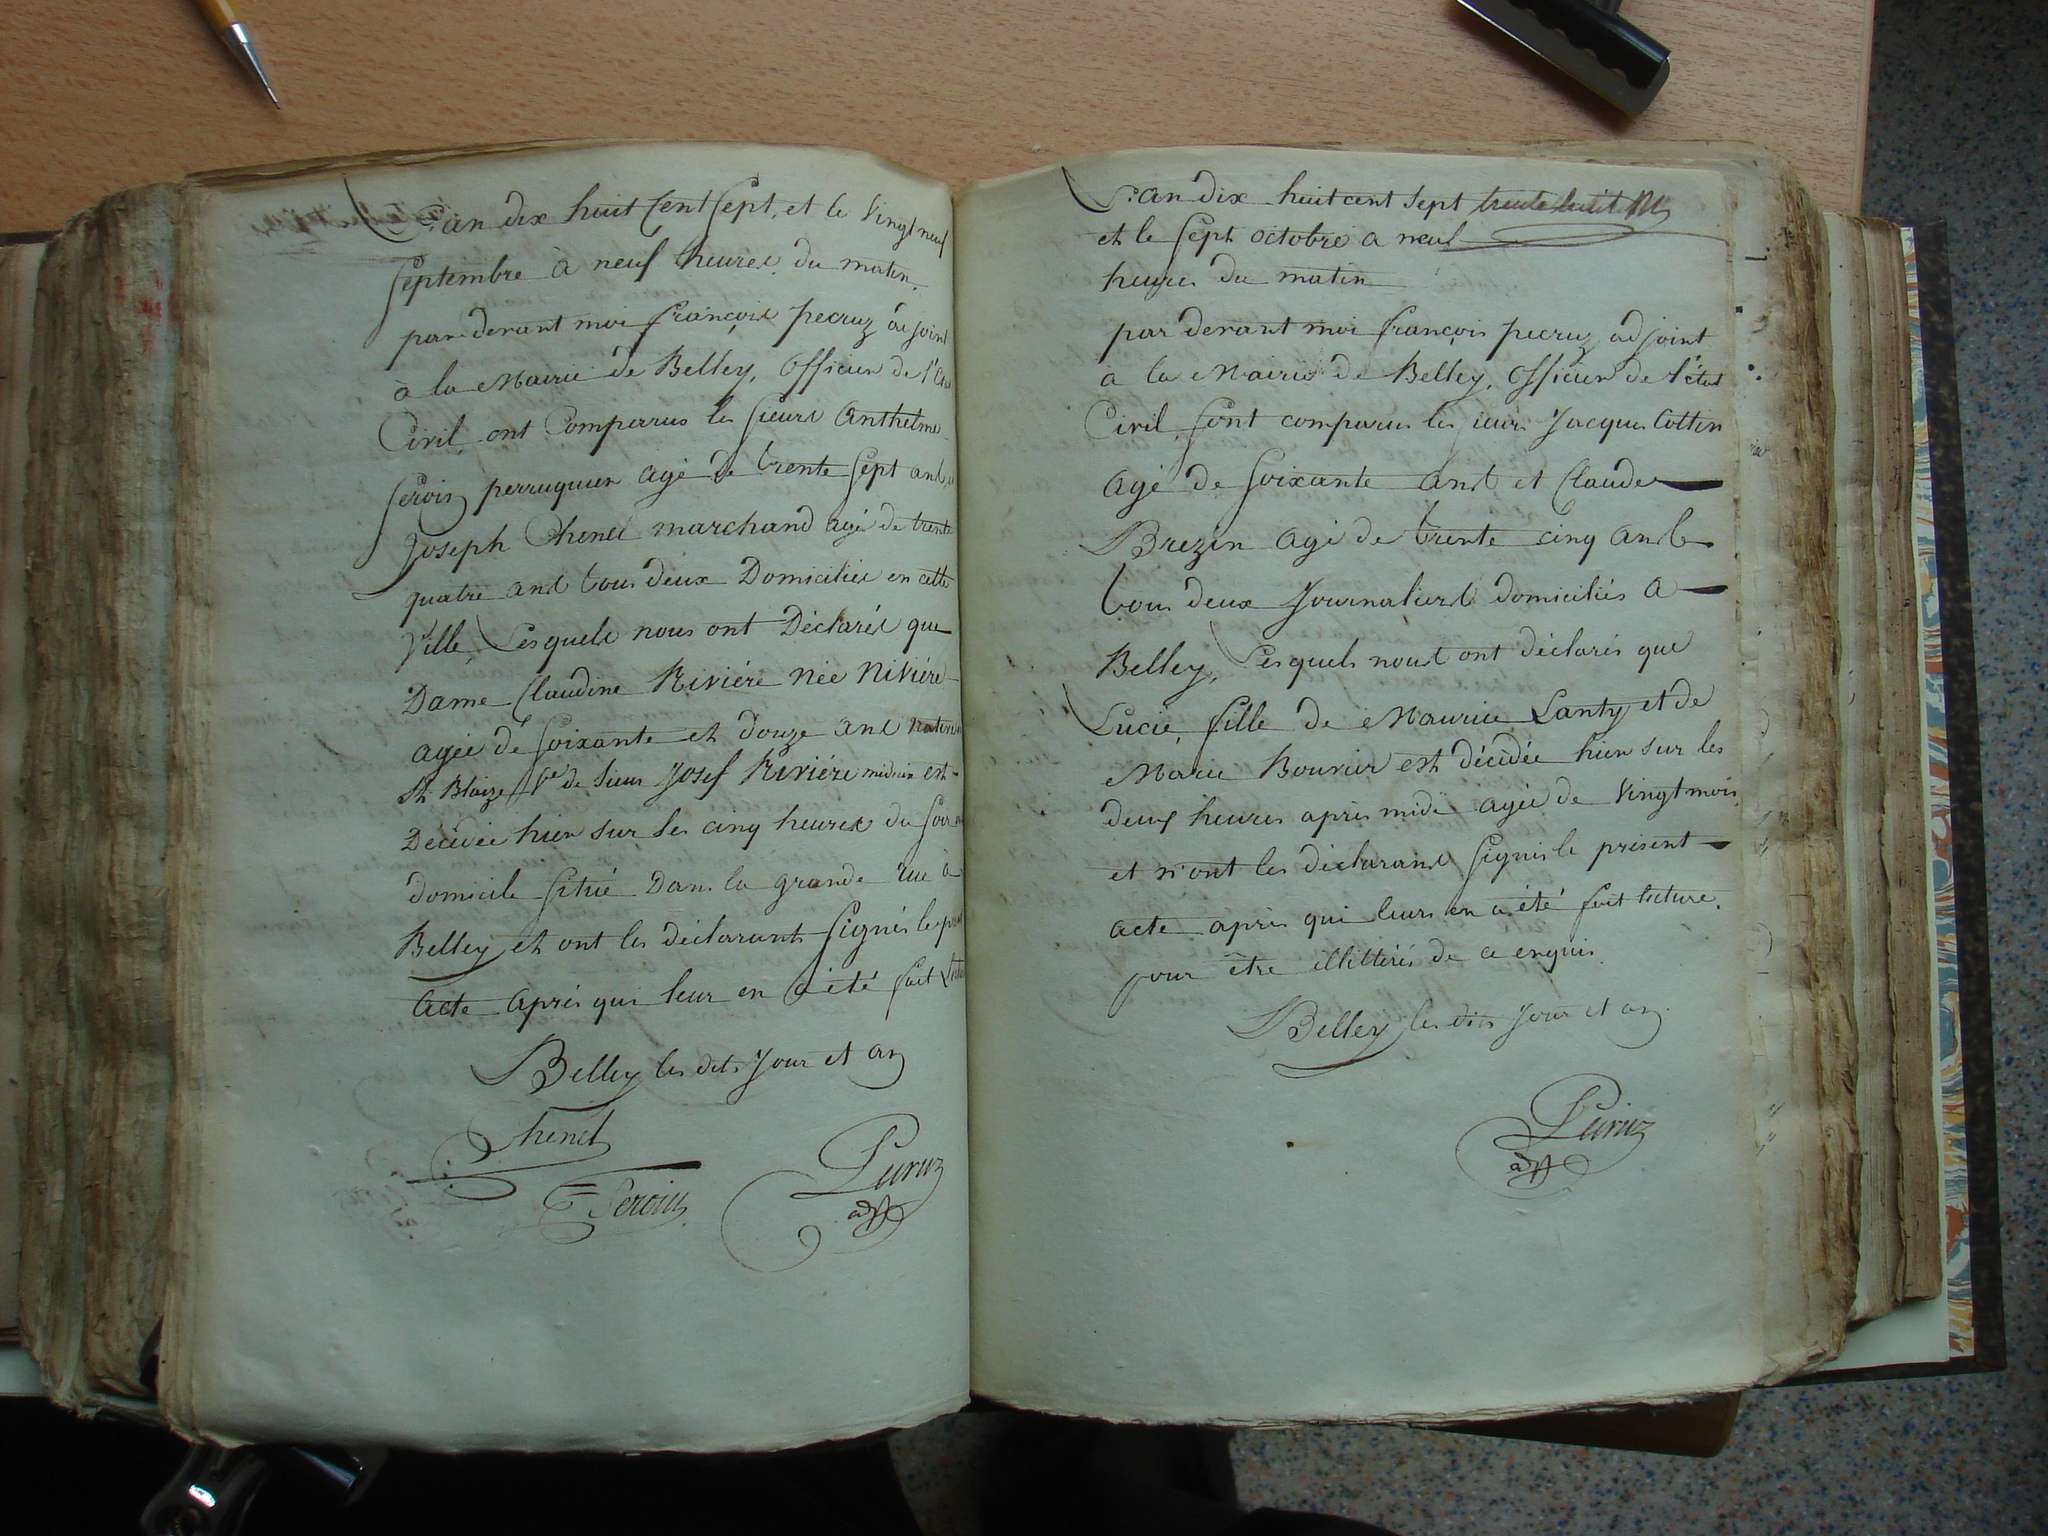 L'an dix huit Cent Sept, et le Vingt neuf
Septembre à neuf heures du matin,
par devant moi françois pecruz adjoint
à la Mairie de Belley, Officier de l'Etat
Civil, ont Comparus les sieurs Anthelme
Seroin perruquier agé de trente Sept ans, et
Joseph Chenel marchand agé de trente
quatre ans tous deux Domiciliés en cette
Ville, Lesquels nous ont Déclarés que
Dame Claudine Riviére Née Niviére
agée de soixante et douze ans native
St Blaize Ve de sieur Josef Riviére est
Décédée hier sur les cinq heures du Soir
domicile Situé Dans la grande rue à
Belley et ont les déclarants Signés le
Acte Aprés qui leur en a été fait
Belley les dits Jour et an
Chenel
Seroin
Pecruz
adjt
L'an dix huit cent sept trente huit
et le Sept octobre a neuf
heures du matin
par devant moi françois pecruz adjoint
a la Mairie de Belley, Officier de l'état
Civil, sont comparus les sieurs Jacques Cottin
Agé de soixante Ans et Claude
Brezin agé de trente cinq Ans
tous deux Journaliers domiciliés a
Belley, Lesquels nous ont déclarés que
Lucie, fille de Maurice Lanty et de
Marie Bouvier est décédée hier sur les
deux heures après midi agée de vingt mois
et n'ont les déclarans signés le présent
acte aprés qui leurs en a été fait lecture,
pour être illittérés de ce enquis.
Belley les dits Jour et an
Pecruz
adjt